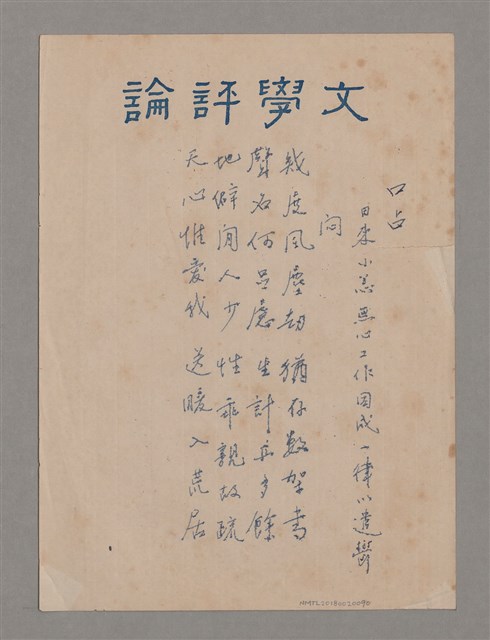 文學評論
口占
日來小恙無心工作因成一律以遣鬱
悶
幾度风塵劫 猶存数架書
聲名何足慮 生計多餘
地僻閒人少 性乖親故疏
天心惟愛我 送暖入荒居
NMTL20180020090